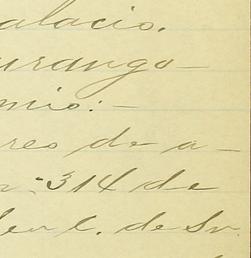 alacio.
urango—
mio:—
res de a-
314 de
C. de Sr.